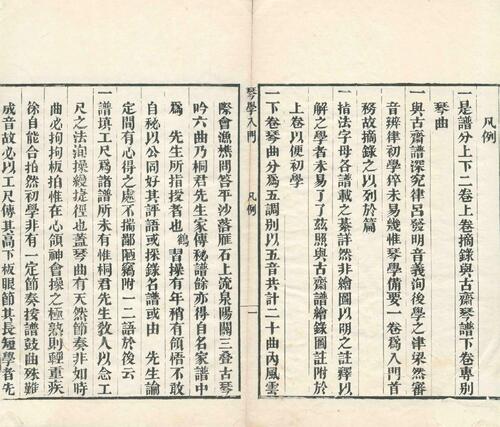 凡例
一是譜分上下二卷上卷摘錄與古齋琴譜下卷專列
琴曲
一與古齋譜深究律呂發明音義洵後學之津梁然審
音辨律初學猝未易幾惟琴學備要一卷爲入門首
務故摘錄之以列於篇
一指法字母各譜載之綦詳然非繪圖以明之註釋以
解之學者未易了了茲照與古齋譜繪錄圖註附於
上卷以便初學
一下卷琴曲分爲五調別以五音共計二十曲內風雲
琴學入門
凡例
一
際會漁樵問答平沙落雁石上流泉陽關三叠古琴
吟六曲乃桐君先生家傳秘譜餘亦得自名家譜中
爲 先生所指授者也鶴習操有年稍有領悟不敢
自秘以公同好其評語或採錄名譜或由 先生論
定間有心得之處不揣鄙陋竊附一二語於後云
一譜填工尺爲諸譜所未有惟桐君先生敎人以念工
尺之法洵操縵捷徑也蓋琴曲有天然節奏非如時
曲必拘拘板拍惟在心領神會操之極熟則輕重疾
徐自能合拍然初學非有一定節奏按譜鼓曲殊難
成音故必以工尺傳其高下板眼節其長短學者先